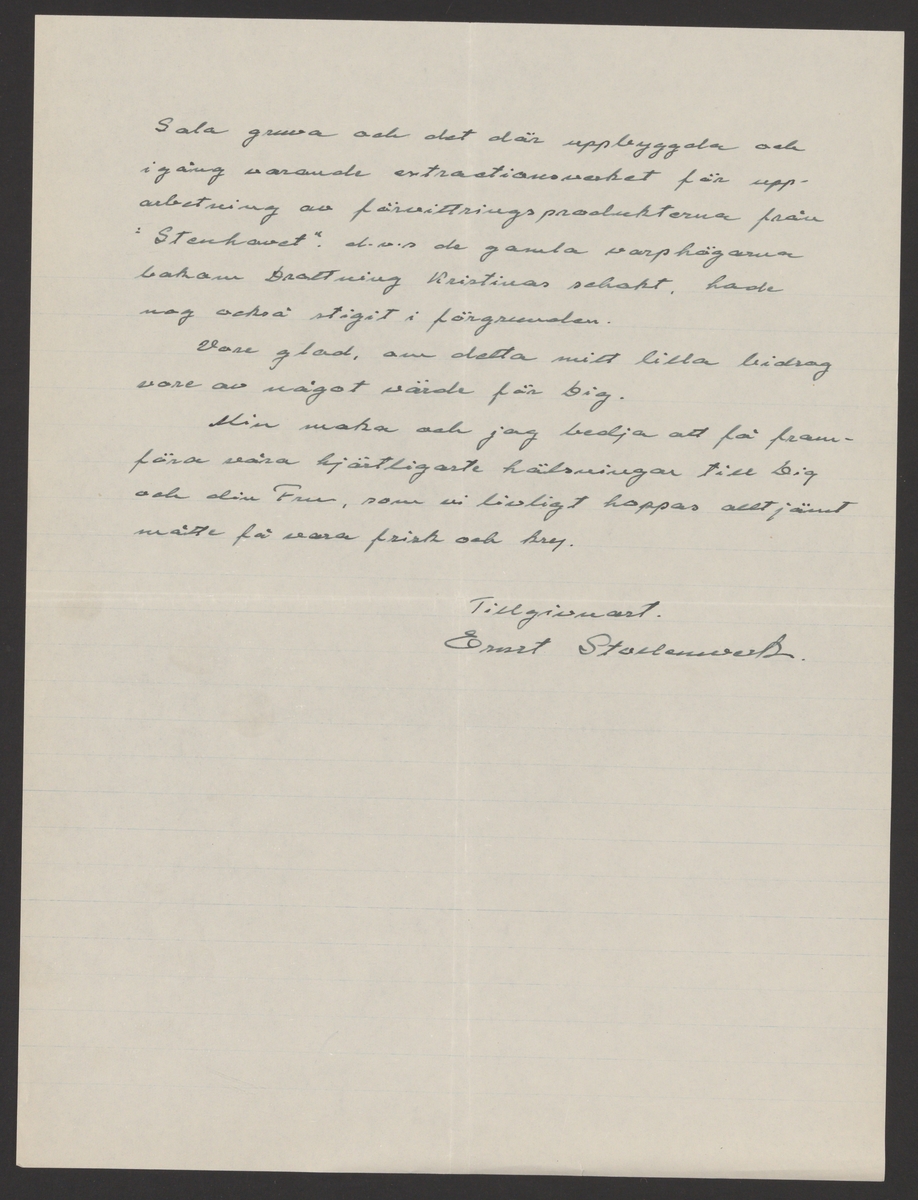 Sala gruva och det där uppbyggda och
igång varande extractionsverket för upp-
arbetning av förvittringsprodukterna från
"Stenhavet". d.v.s de gamla varphögarna
bakom Drottning Kristinas schakt, hade
nog också stigit i förgrunden.
Vore glad, om detta mitt lilla bidrag
vore av något värde för Dig.
Min maka och jag bedja att få fram-
föra våra hjärtligaste hälsningar till Dig
och din Fru, som vi livligt hoppas alltjämt
måtte få vara frisk och kry.
Tillgivnast.
Ernst Stollenwerk.